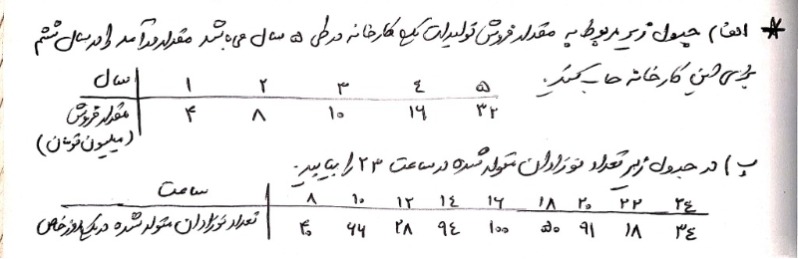 * الف) جدول زیر مربوط به مقدار فروش تولیدات یک کارخانه در طی ۵ سال می باشد مقدار درآمد را در سال ششم
برای این کارخانه حساب کنید.
سال ۱ ۲ ۳ ٤ ۵
مقدار فروش ۴ ۸ ۱۰ ۱۶ ۳۲
(میلیون تومان)
ب) در جدول زیر تعداد نوزادان متولد شده در ساعت ۲۳ را بیابید.
ساعت ۸ ۱۰ ۱۲ ۱٤ ۱۶ ۱۸ ۲۰ ۲۲ ۲٤
تعداد نوزادان متولد شده در یک روز خاص ۴۰ ۶۶ ۲۸ ۹٤ ۱۰۰ ۵۰ ۹۱ ۱۸ ۳٤